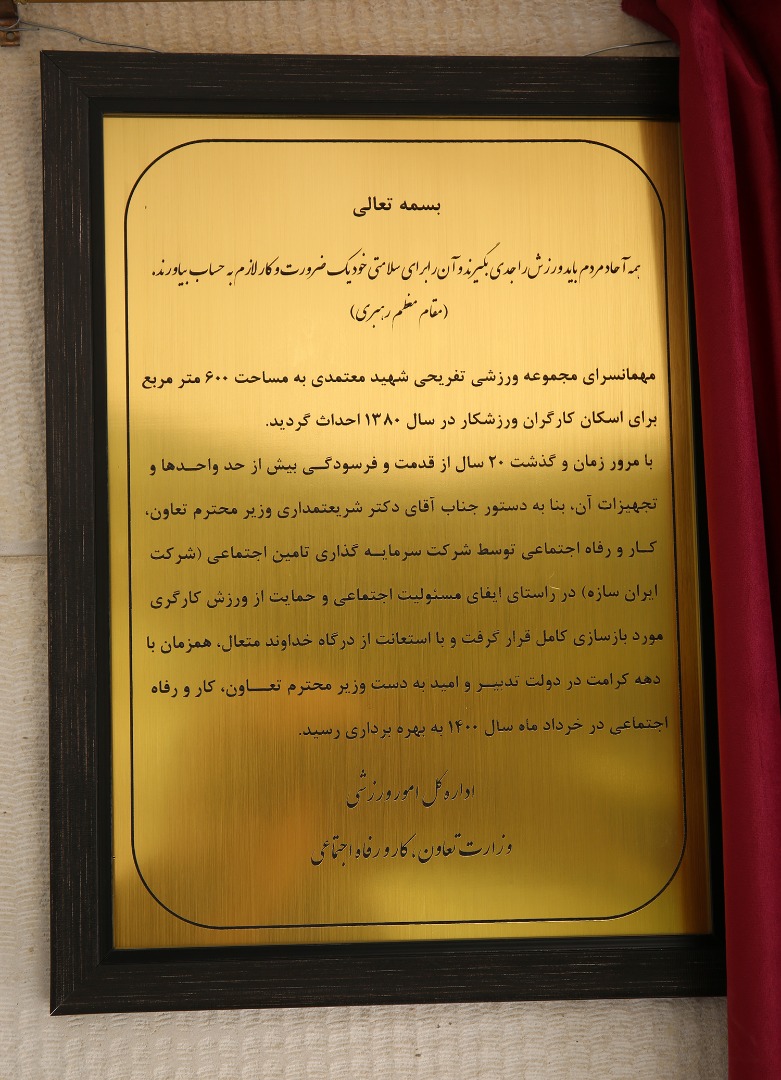 بسمه تعالی
همه آحاد مردم باید ورزش را جدی بگیرند و آن را برای سلامتی خود یک ضرورت و کار لازم به حساب بیاورند.
(مقام معظم رهبری)
مهمانسرای مجموعه ورزشی تفریحی شهید معتمدی به مساحت ۶۰۰ متر مربع
برای اسکان کارگران ورزشکار در سال ۱۳۸۰ احداث گردید.
با مرور زمان و گذشت ۲۰ سال از قدمت و فرسودگی بیش از حد واحدها و
تجهیزات آن، بنا به دستور جناب آقای دکتر شریعتمداری وزیر محترم تعاون،
کار و رفاه اجتماعی توسط شرکت سرمایه گذاری تامین اجتماعی (شرکت
ایران سازه) در راستای ایفای مسئولیت اجتماعی و حمایت از ورزش کارگری
مورد بازسازی کامل قرار گرفت و با استعانت از درگاه خداوند متعال، همزمان با
دهه کرامت در دولت تدبیر و امید به دست وزیر محترم تعاون، کار و رفاه
اجتماعی در خرداد ماه سال ۱۴۰۰ به بهره برداری رسید.
اداره کل امور ورزشی
وزارت تعاون، کار و رفاه اجتماعی